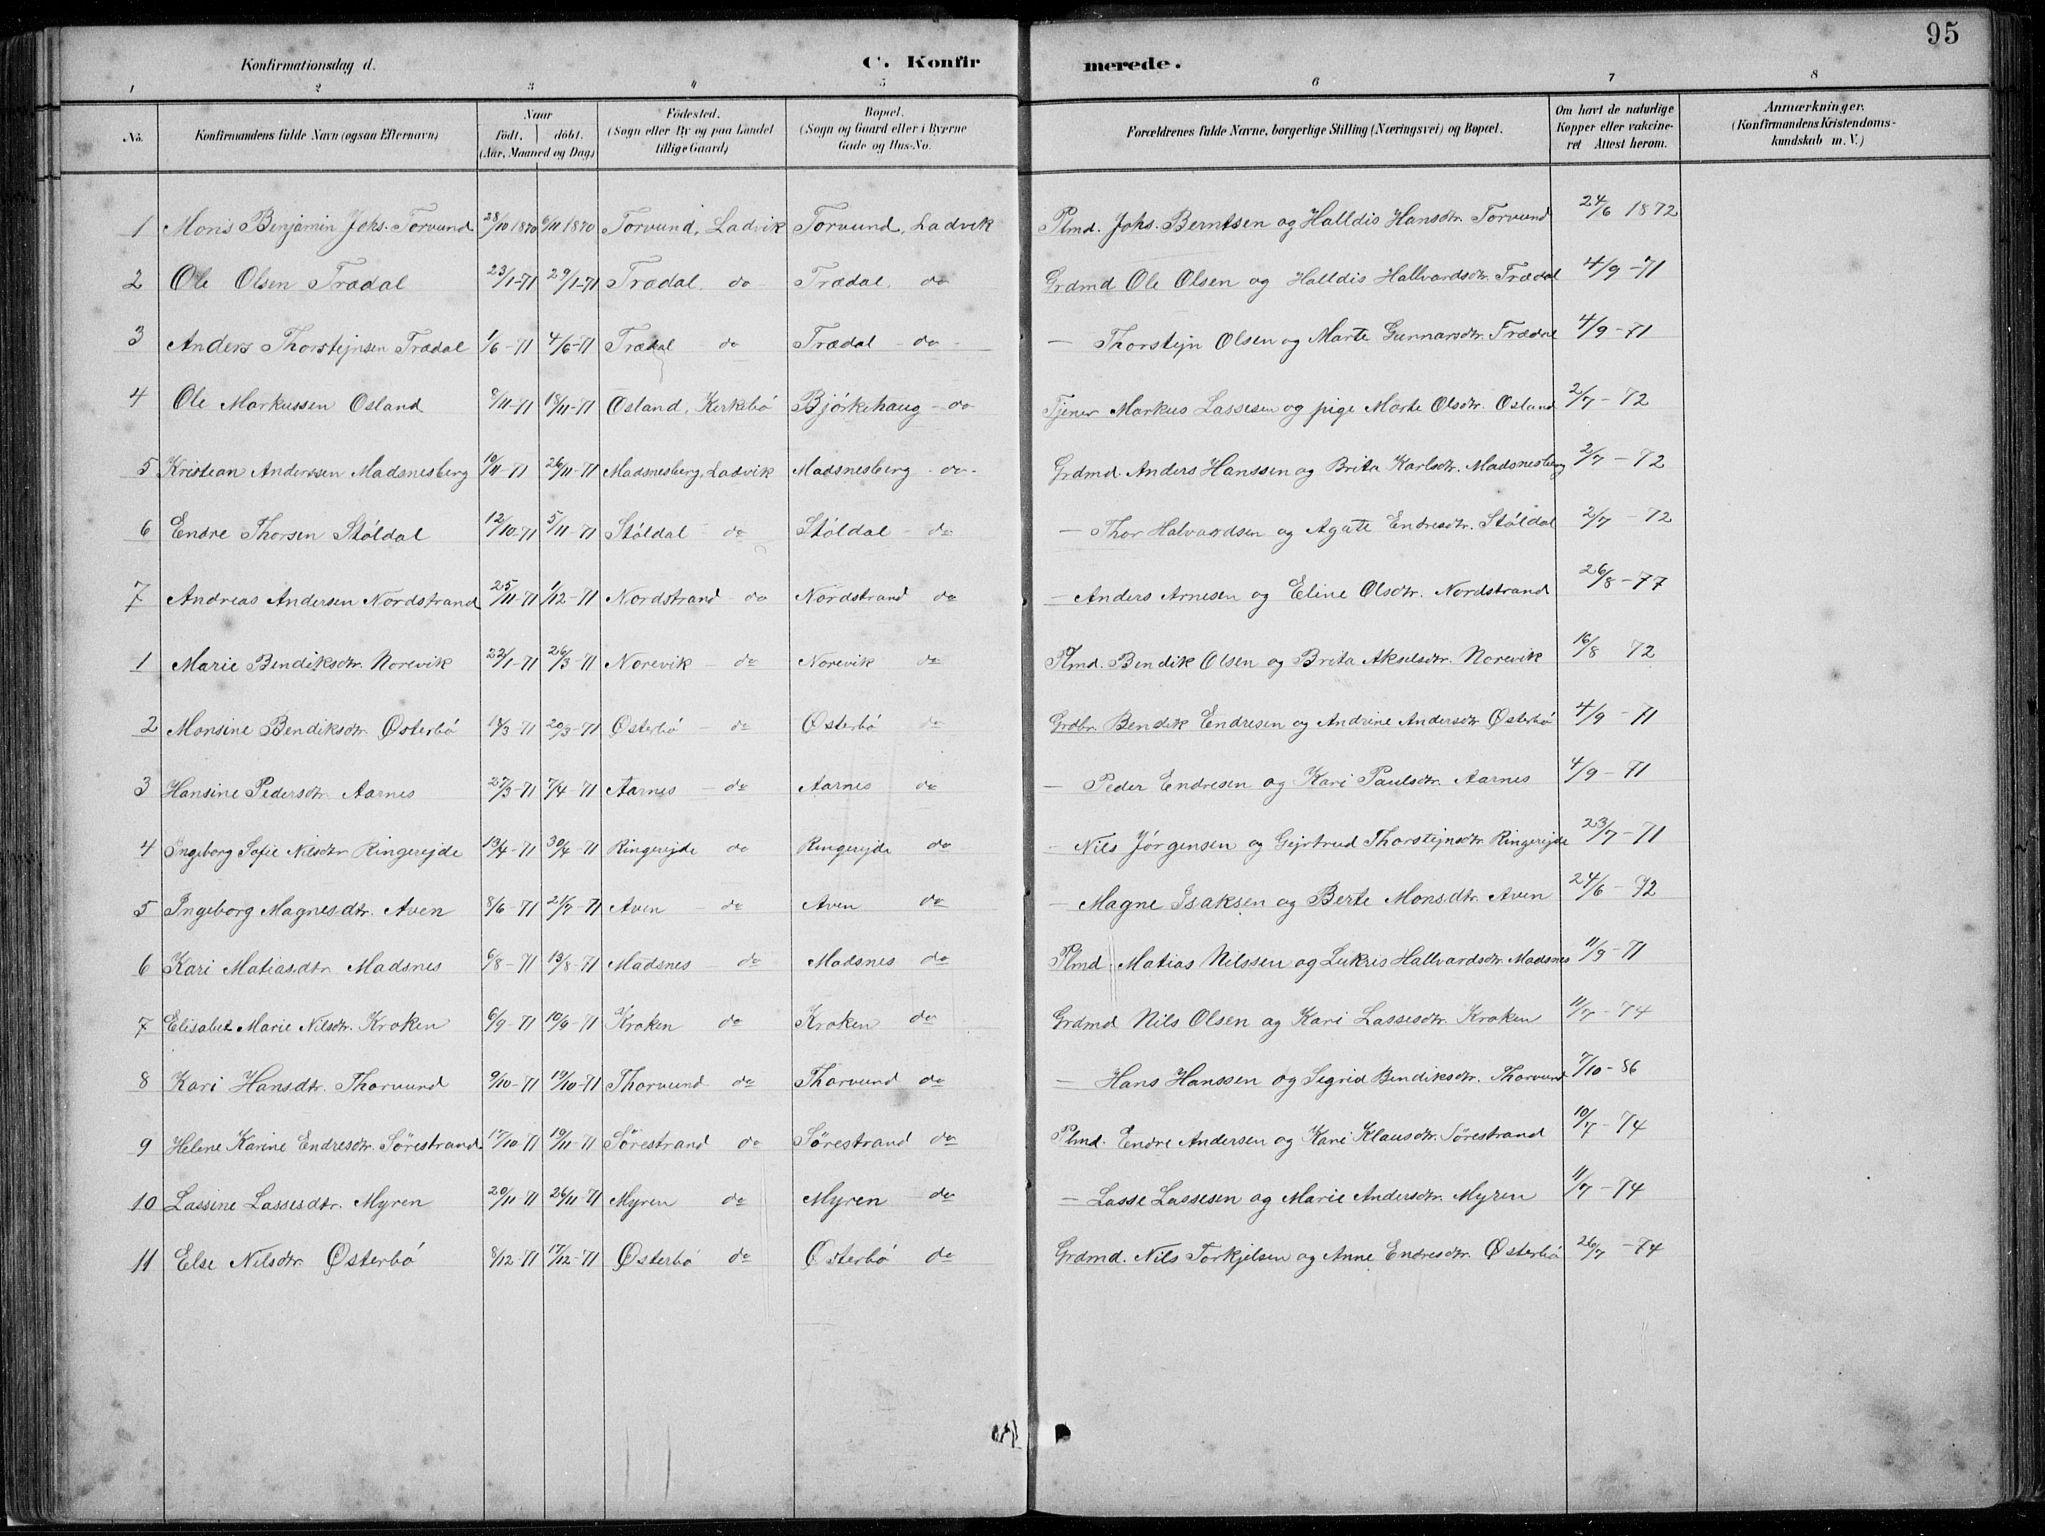 95
Konfirmationsdag d.
C. Konfir merede.
1 2 3 4 5 6 7 8
No. Konfirmandens fulde Navn (ogsaa Efternavn) Naar født. døbt. (Aar, Maaned og Dag) Fødested. (Sogn eller By og paa Landet tillige Gaard) Bopæl. (Sogn og Gaard eller i Byerne Gade og Hus-No. Forældrenes fulde Navne, borgerlige Stilling (Næringsvei) og Bopæl. Om havt de naturlige Kopper eller vakcineret Attest herom. Anmærkninger. (Konfirmandens Kristendomskundskab m. V.)
1 Mons Benjamin Johs. Torvund 28/10 1870 6/11 1870 Torvund, Ladvik Torvund, Ladvik Plmd. Johs. Berntsen og Halldis Hansdtr. Torvund 24/6 1872
2 Ole Olsen Trædal 23/1-71 29/1-71 Trædal. do Trædal. do Grdmd Ole Olsen og Halldis Hallvardsdtr. Trædal 4/9-71
3 Anders Thorstejnsen Trædal 1/6-71 4/6-71 Trædal - do Trædal - do - — Thorstejn Olsen og Marte Gunnarsdtr. Trædal 4/9-71
4 Ole Markussen Osland /11-71 18/11-71 Osland, Kirkebø Bjørkehaug - do Tjener Markus Lassesen og pige Marte Olsdtr. Osland 2/7-72
5 Kristian Anderssen Madsnesberg 19/11-71 26/11-71 Madsnesberg, Ladvik Madsnesberg - do - Grdmd. Anders Hanssen og Brita Karlsdtr. Madsnesberg 2/7-72
6 Endre Thorsen Støldal 12/10-71 5/11-71 Støldal - do Støldal - do — Thor Halvardsen og Agate Endresdtr. Støldal 2/7-72
7 Andreas Andersen Nordstrand 25/11-71 1/12-71 Nordstrand - do Nordstrand do — Anders Arnesen og Eline Olsdtr. Nordstrand 26/8-77
1 Marie Bendiksdtr. Norevik 22/1-71 26/3-71 Norevik - do Norevik do Plmd. Bendik Olsen og Brita Akselsdtr. Norevik 16/8 72
2 Monsine Bendiksdtr. Østerbø /3-71 20/3-71 Østerbø - do Østerbø do Grdbr. Bendik Endresen og Andrine Andersdtr. Østerbø 4/9-71
3 Hansine Pedersdtr. Aarnes 27/3-71 7/4-71 Aarnes - do Aarnes do — Peder Endresen og Kari Paulsdtr. Aarnes 4/9-71
4 Ingeborg Sofie Nilsdtr. Ringerejde 13/4-71 30/4-71 Ringerejde do Ringerejde do - Nils Jørgensen og Gjertrud Thorstejnsdtr. Ringerejde 23/7-71
5 Ingeborg Magnesdtr. Aven 8/6-71 21/7-71 Aven - do Aven do — Magne Isaksen og Berte Monsdtr. Aven 24/6-72
6 Kari Matiasdtr. Madsnes 6/8-71 13/8-71 Madsnes do Madsnes do Plmd. Matias Nilssen og Lukris Hallvardsdtr. Madsnes 11/9-71
7 Elisabet Marie Nilsdtr. Kroken 6/9-71 10/9-71 Kroken do Kroken do Grdmd Nils Olsen og Kari Lassesdtr. Kroken 11/7-74
8 Kari Hansdtr. Thorvund 9/10-71 19/10-71 Thorvund do Thorvund do — Hans Hanssen og Sigrid Bendiksdtr. Thorvund 7/10-86
9 Helene Karine Endresdtr. Sørestrand 17/10-71 19/11-71 Sørestrand do Sørestrand do Plmd. Endre Andersen og Kari Klausdtr. Sørestrand 10/7-74
10 Lassine Lassesdtr. Myren 20/11-71 26/11-71 Myren do Myren do — Lasse Lassesen og Marie Andersdtr. Myren 11/7-74
11 Else Nilsdtr. Østerbø 8/12-71 17/12-71 Østerbø do Østerbø do Grdmd. Nils Torkjelsen og Anne Endresdtr. Østerbø 26/7-74